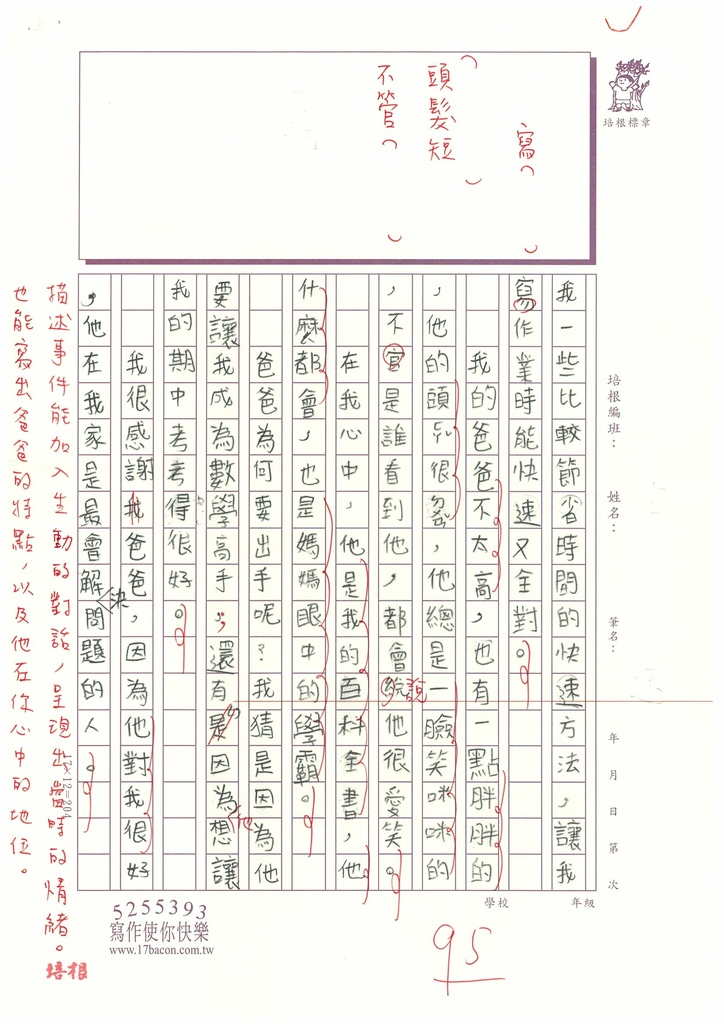 寫
頭髮短
不管
培根標章
我一些比較節省時間的快速方法，讓我
寫作業時能快速又全對。
我的爸爸不太高，也有一點胖胖的
，他的頭很，他總是一臉笑咪咪的
，不官是誰看到他，都會說他很愛笑。
在我心中，他是我的百科全書，他
什麼都會，也是媽媽眼中的學霸。
爸爸為何要出手呢？我猜是因為他
要讓我成為數學高手，還有是因為想他讓
我的期中考考得很好。
我很感謝我爸爸，因為他對我很好
，他在我家是最會解決問題的人。
培根編班：
姓名：
筆名：
年月日第次
學校
年級
17×12=204
描述事件能加入生動的對話，呈現出當時的情緒。
也能寫出爸爸的特點，以及他在你心中的地位。
培根
5255393
寫作使你快樂
www.17bacon.com.tw
95